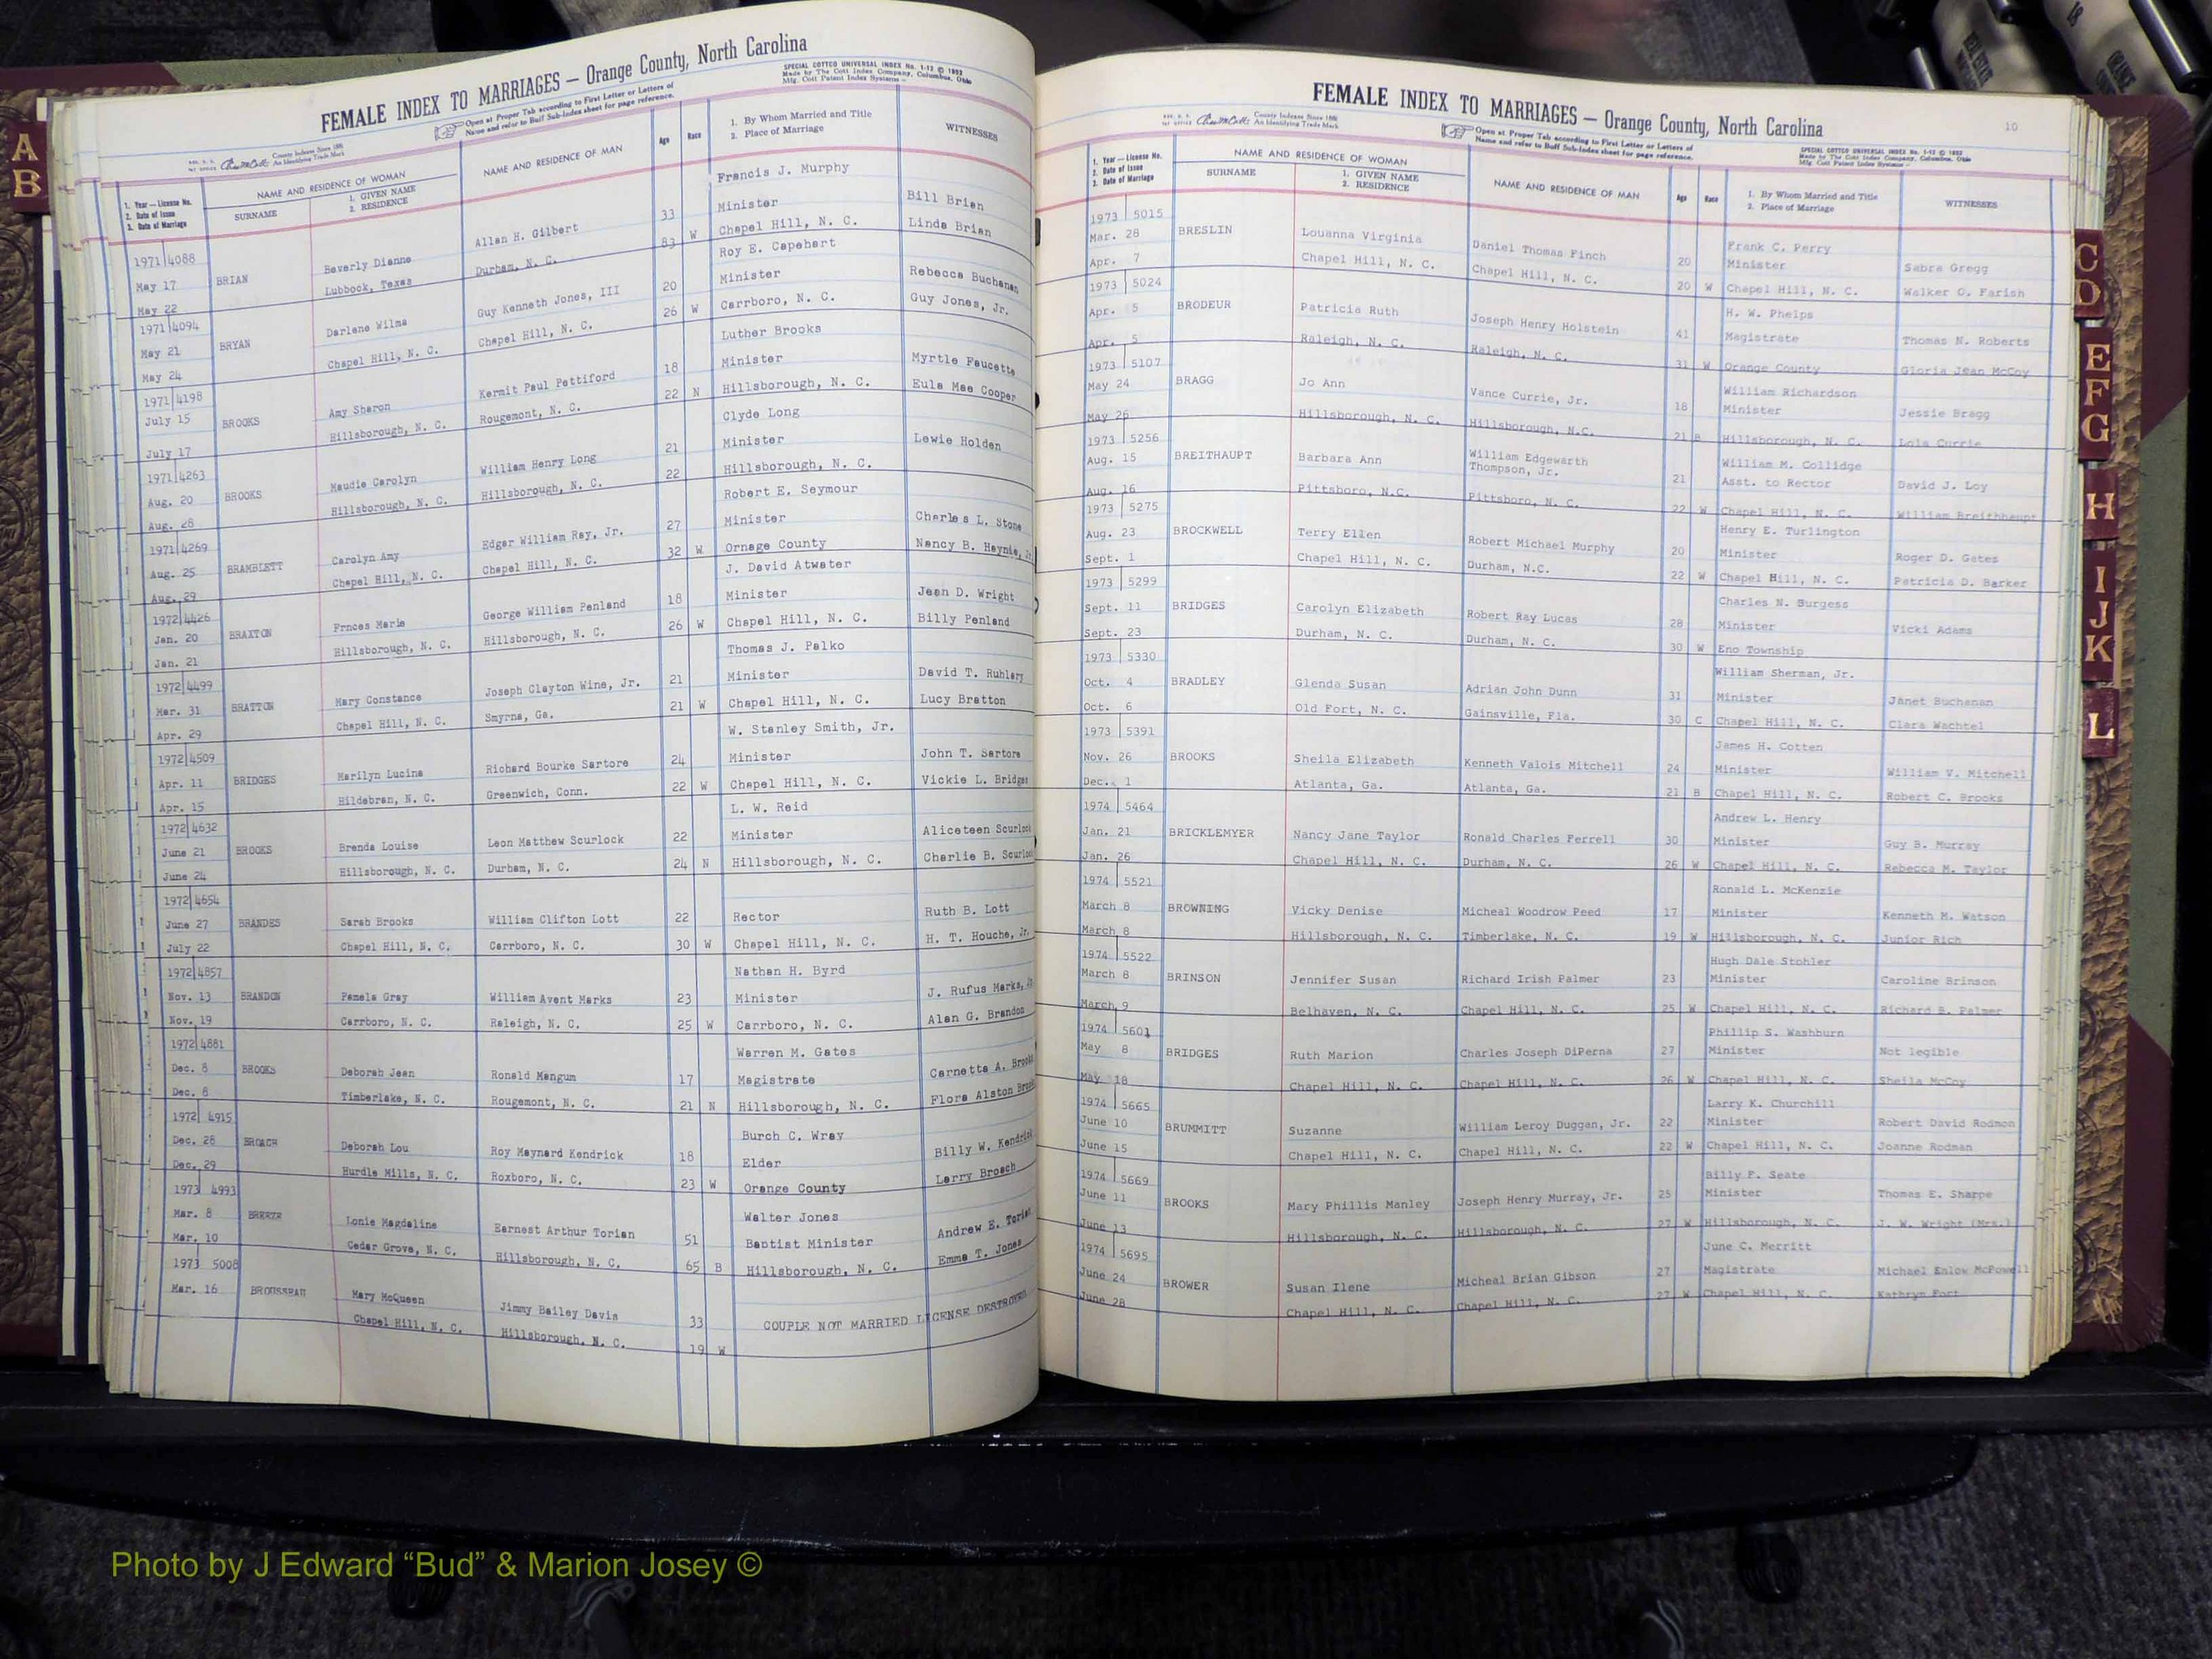 FEMALE INDEX TO MARRIAGES — Orange County, North Carolina
SPECIAL COTTCO UNIVERSAL INDEX No. 1-12 © 1952
Made by The Cott Index Company, Columbus, Ohio
Mfg. Cott Patent Index Systems
Open at Proper Tab according to First Letter or Letters of
Name and refer to Buff Sub-Index sheet for page reference.
County Indexes Since 1881
An Identifying Trade Mark
1. Year — License No.
2. Date of Issue
3. Date of Marriage
NAME AND RESIDENCE OF WOMAN
SURNAME
1. GIVEN NAME
2. RESIDENCE
NAME AND RESIDENCE OF MAN
Age
Race
1. By Whom Married and Title
2. Place of Marriage
WITNESSES
1971 4088 Francis J. Murphy
May 17 BRIAN Beverly Dianne Allan H. Gilbert 33 Minister Bill Brian
May 22 Lubbock, Texas Durham, N. C. 83 W Chapel Hill, N. C. Linda Brian
1971 4094 Roy E. Capehart
May 21 BRYAN Darlene Wilma Guy Kenneth Jones, III 20 Minister Rebecca Buchanan
May 24 Chapel Hill, N. C. Chapel Hill, N. C. 26 W Carrboro, N. C. Guy Jones, Jr.
1971 4198 Luther Brooks
July 15 BROOKS Amy Sharon Kermit Paul Pettiford 18 Minister Myrtle Faucette
July 17 Hillsborough, N. C. Rougemont, N. C. 22 N Hillsborough, N. C. Eula Mae Cooper
1971 4263 Clyde Long
Aug. 20 BROOKS Maudie Carolyn William Henry Long 21 Minister Lewie Holden
Aug. 28 Hillsborough, N. C. Hillsborough, N. C. 22 Hillsborough, N. C.
1971 4269 Robert E. Seymour
Aug. 25 BRAMBLETT Carolyn Amy Edgar William Ray, Jr. 27 Minister Charles L. Stone
Aug. 29 Chapel Hill, N. C. Chapel Hill, N. C. 32 W Ornage County Nancy B. Haynie, Jr.
1972 4426 J. David Atwater
Jan. 20 BRAXTON Frnces Marie George William Penland 18 Minister Jean D. Wright
Jan. 21 Hillsborough, N. C. Hillsborough, N. C. 26 W Chapel Hill, N. C. Billy Penland
1972 4499 Thomas J. Palko
Mar. 31 BRATTON Mary Constance Joseph Clayton Wine, Jr. 21 Minister David T. Ruhlery
Apr. 29 Chapel Hill, N. C. Smyrna, Ga. 21 W Chapel Hill, N. C. Lucy Bratton
1972 4509 W. Stanley Smith, Jr.
Apr. 11 BRIDGES Marilyn Lucine Richard Bourke Sartore 24 Minister John T. Sartore
Apr. 15 Hildebran, N. C. Greenwich, Conn. 22 W Chapel Hill, N. C. Vickie L. Bridges
1972 4632 L. W. Reid
June 21 BROOKS Brenda Louise Leon Matthew Scurlock 22 Minister Aliceteen Scurlock
June 24 Hillsborough, N. C. Durham, N. C. 24 N Hillsborough, N. C. Charlie B. Scurlock
1972 4654
June 27 BRANDES Sarah Brooks William Clifton Lott 22 Rector Ruth B. Lott
July 22 Chapel Hill, N. C. Carrboro, N. C. 30 W Chapel Hill, N. C. H. T. Houche, Jr.
1972 4857 Nathan H. Byrd
Nov. 13 BRANDON Pamela Gray William Avent Marks 23 Minister J. Rufus Marks, Jr.
Nov. 19 Carrboro, N. C. Raleigh, N. C. 25 W Carrboro, N. C. Alan G. Brandon
1972 4881 Warren M. Gates
Dec. 8 BROOKS Deborah Jean Ronald Mangum 17 Magistrate Carnetta A. Brooks
Dec. 8 Timberlake, N. C. Rougemont, N. C. 21 N Hillsborough, N. C. Flora Alston Brooks
1972 4915 Burch C. Wray
Dec. 28 BROACH Deborah Lou Roy Maynard Kendrick 18 Elder Billy W. Kendrick
Dec. 29 Hurdle Mills, N. C. Roxboro, N. C. 23 W Orange County Larry Broach
1973 4993 Walter Jones
Mar. 8 BREEZE Lonie Magdaline Earnest Arthur Torian 51 Baptist Minister Andrew E. Torian
Mar. 10 Cedar Grove, N. C. Hillsborough, N. C. 65 B Hillsborough, N. C. Emma T. Jones
1973 5008
Mar. 16 BROUSSEAU Mary McQueen Jimmy Bailey Davis 33 COUPLE NOT MARRIED LICENSE DESTROYED
Chapel Hill, N. C. Hillsborough, N. C. 19 W
FEMALE INDEX TO MARRIAGES — Orange County, North Carolina
10
County Indexes Since 1881
An Identifying Trade Mark
Open at Proper Tab according to First Letter or Letters of
Name and refer to Buff Sub-Index sheet for page reference.
SPECIAL COTTCO UNIVERSAL INDEX No. 1-12 © 1952
Made by The Cott Index Company, Columbus, Ohio
Mfg. Cott Patent Index Systems
1. Year — License No.
2. Date of Issue
3. Date of Marriage
NAME AND RESIDENCE OF WOMAN
SURNAME
1. GIVEN NAME
2. RESIDENCE
NAME AND RESIDENCE OF MAN
Age
Race
1. By Whom Married and Title
2. Place of Marriage
WITNESSES
1973 5015 Frank C. Perry
Mar. 28 BRESLIN Louanna Virginia Daniel Thomas Finch 20 Minister Sabra Gregg
Apr. 7 Chapel Hill, N. C. Chapel Hill, N. C. 20 W Chapel Hill, N. C. Walker O. Farish
1973 5024 H. W. Phelps
Apr. 5 BRODEUR Patricia Ruth Joseph Henry Holstein 41 Magistrate Thomas N. Roberts
Apr. 5 Raleigh, N. C. Raleigh, N. C. 31 W Orange County Gloria Jean McCoy
1973 5107 William Richardson
May 24 BRAGG Jo Ann Vance Currie, Jr. 18 Minister Jessie Bragg
May 26 Hillsborough, N. C. Hillsborough, N.C. 21 B Hillsborough, N. C. Lola Currie
1973 5256 William M. Collidge
Aug. 15 BREITHAUPT Barbara Ann William Edgewarth Thompson, Jr. 21 Asst. to Rector David J. Loy
Aug. 16 Pittsboro, N.C. Pittsboro, N. C. 22 W Chapel Hill, N. C. William Breithhaupt
1973 5275 Henry E. Turlington
Aug. 23 BROCKWELL Terry Ellen Robert Michael Murphy 20 Minister Roger D. Gates
Sept. 1 Chapel Hill, N. C. Durham, N.C. 22 W Chapel Hill, N. C. Patricia D. Barker
1973 5299 Charles N. Burgess
Sept. 11 BRIDGES Carolyn Elizabeth Robert Ray Lucas 28 Minister Vicki Adams
Sept. 23 Durham, N. C. Durham, N. C. 30 W Eno Township
1973 5330 William Sherman, Jr.
Oct. 4 BRADLEY Glenda Susan Adrian John Dunn 31 Minister Janet Buchanan
Oct. 6 Old Fort, N. C. Gainsville, Fla. 30 C Chapel Hill, N. C. Clara Wachtel
1973 5391 James H. Cotten
Nov. 26 BROOKS Sheila Elizabeth Kenneth Valois Mitchell 24 Minister William V. Mitchell
Dec. 1 Atlanta, Ga. Atlanta, Ga. 21 B Chapel Hill, N. C. Robert C. Brooks
1974 5464 Andrew L. Henry
Jan. 21 BRICKLEMYER Nancy Jane Taylor Ronald Charles Ferrell 30 Minister Guy B. Murray
Jan. 26 Chapel Hill, N. C. Durham, N. C. 26 W Chapel Hill, N. C. Rebecca M. Taylor
1974 5521 Ronald L. McKenzie
March 8 BROWNING Vicky Denise Micheal Woodrow Peed 17 Minister Kenneth M. Watson
March 8 Hillsborough, N. C. Timberlake, N. C. 19 W Hillsborough, N. C. Junior Rich
1974 5522 Hugh Dale Stohler
March 8 BRINSON Jennifer Susan Richard Irish Palmer 23 Minister Caroline Brinson
March 9 Belhaven, N. C. Chapel Hill, N. C. 25 W Chapel Hill, N. C. Richard B. Palmer
1974 5601 Phillip S. Washburn
May 8 BRIDGES Ruth Marion Charles Joseph DiPerna 27 Minister Not legible
May 18 Chapel Hill, N. C. Chapel Hill, N. C. 26 W Chapel Hill, N. C. Sheila McCoy
1974 5665 Larry K. Churchill
June 10 BRUMMITT Suzanne William Leroy Duggan, Jr. 22 Minister Robert David Rodman
June 15 Chapel Hill, N. C. Chapel Hill, N. C. 22 W Chapel Hill, N. C. Joanne Rodman
1974 5669 Billy F. Seate
June 11 BROOKS Mary Phillis Manley Joseph Henry Murray, Jr. 25 Minister Thomas E. Sharpe
June 13 Hillsborough, N. C. Hillsborough, N. C. 27 W Hillsborough, N. C. J. W. Wright (Mrs.)
1974 5695 June C. Merritt
June 24 BROWER Susan Ilene Micheal Brian Gibson 27 Magistrate Michael Enlow McPowell
June 28 Chapel Hill, N. C. Chapel Hill, N. C. 27 W Chapel Hill, N. C. Kathryn Fort
A
B
C
D
E
F
G
H
I
J
K
L
18
Photo by J Edward “Bud” & Marion Josey ©